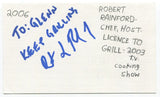 2006
TO: GLENN
KEEP GRILLING
ROBERT
RAINFORD-
CHEF, HOST:
LICENCE TO
GRILL-2003
T.V.
COOKING
SHOW